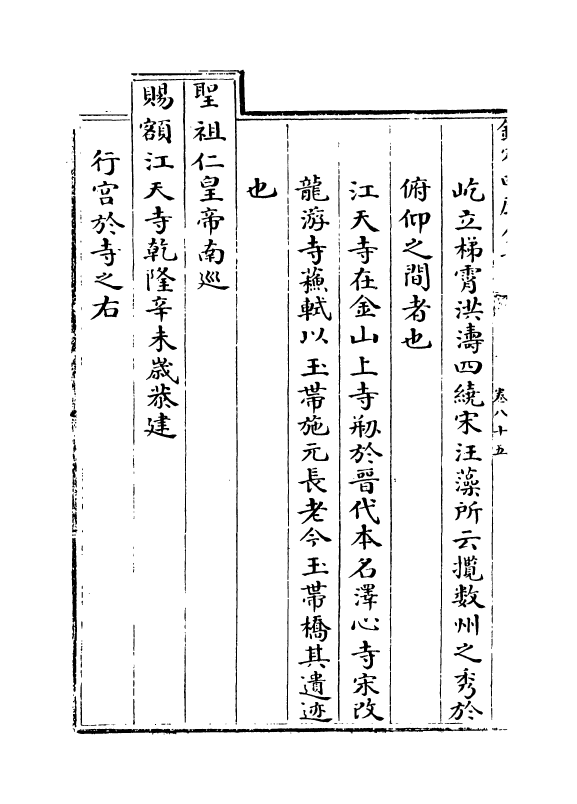 屹立梯霄洪濤四繞宋汪藻所云攬數州之秀於
俯仰之間者也
江天寺在金山上寺剏於晉代本名澤心寺宋改
龍游寺蘇軾以玉帶施元長老今玉帶橋其遺迹
也
聖祖仁皇帝南巡
賜額江天寺乾隆辛未歲恭建
行宮於寺之右
卷八十五